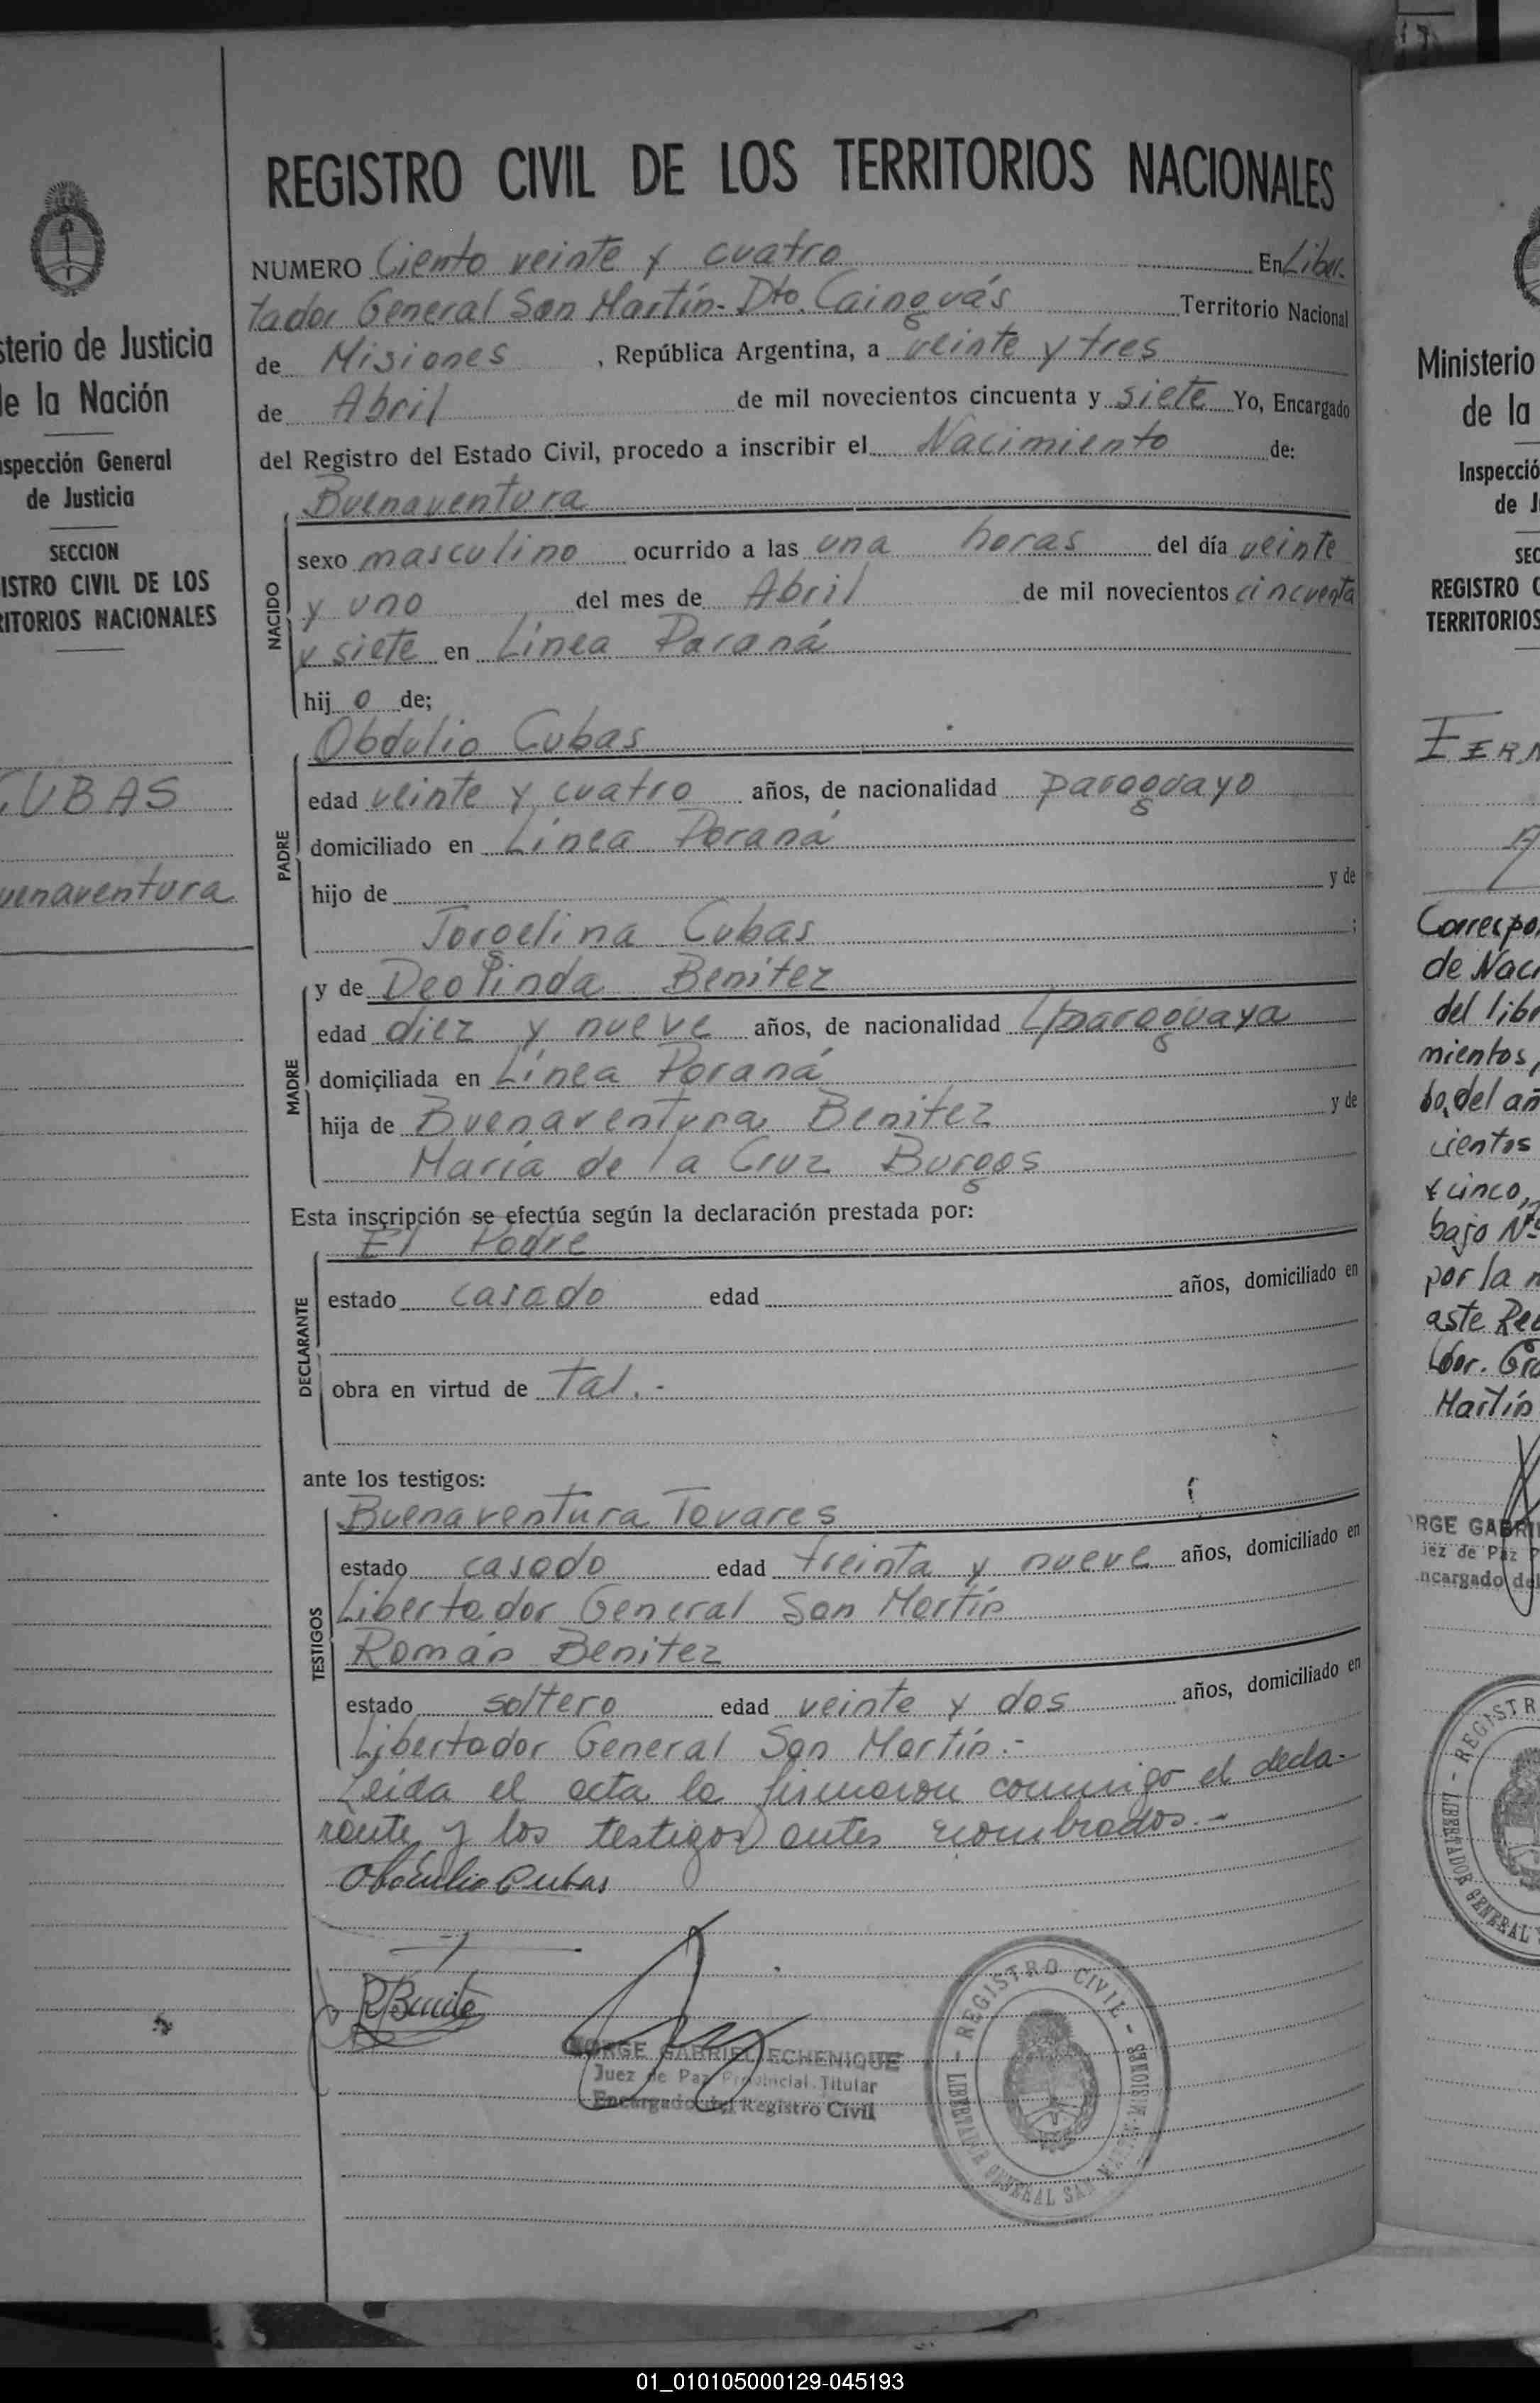 REGISTRO CIVIL DE LOS TERRITORIOS NACIONALES
NUMERO Ciento veinte y cuatro En Liber-
tador General San Martín - Dto. Cainguás Territorio Nacional
de Misiones, República Argentina, a veinte y tres
de Abril de mil novecientos cincuenta y siete Yo, Encargado
del Registro del Estado Civil, procedo a inscribir el Nacimiento de:
NACIDO
Buenaventura
sexo masculino ocurrido a las una horas del día veinte
y uno del mes de Abril de mil novecientos cincuenta
y siete en Línea Paraná
hijo de;
PADRE
Obdulio Cubas
edad veinte y cuatro años, de nacionalidad paraguayo
domiciliado en Línea Paraná
hijo de y de
Jorgelina Cubas ;
MADRE
y de Deolinda Benitez
edad diez y nueve años, de nacionalidad paraguaya
domiçiliada en Línea Paraná
hija de Buenaventura Benitez y de
María de la Cruz Burgos
Esta inscripción se efectúa según la declaración prestada por:
DECLARANTE
El Padre
estado casado edad años, domiciliado en
obra en virtud de tal.-
ante los testigos:
TESTIGOS
Buenaventura Tavares
estado casado edad treinta y nueve años, domiciliado en
Libertador General San Martín
Román Benitez
estado soltero edad veinte y dos años, domiciliado en
Libertador General San Martín.-
Leída el acta la firmaron conmigo el decla-
rante y los testigos antes nombrados.-
Obdulio Cubas
R Benite
JORGE GABRIEL ECHENIQUE
Juez de Paz Provincial Titular
Encargado del Registro Civil
- REGISTRO CIVIL -
LIBERTADOR GENERAL SAN MARTIN - MISIONES
sterio de Justicia
de la Nación
nspección General
de Justicia
SECCION
ISTRO CIVIL DE LOS
RITORIOS NACIONALES
CUBAS
uenaventura
Ministerio
de la
Inspecció
de J
SEC
REGISTRO C
TERRITORIOS
FERN
Correspo
de Naci
del libr
mientos,
do, del añ
cientos
y cinco,
bajo Nº
por la m
aste Reg
Lbor. Gra
Martín
ORGE GABRIE
uez de Paz P
ncargado del
- REGISTR
LIBERTADOR GENERAL
01_010105000129-045193